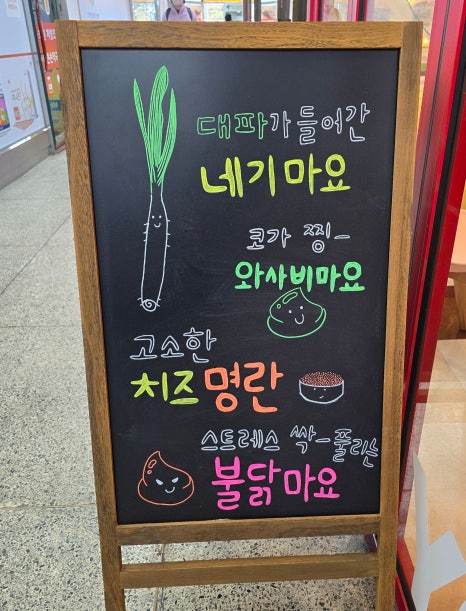 대파가 들어간
네기마요
코가 찡-
와사비마요
고소한
치즈명란
스트레스 싹-풀리는
불닭마요